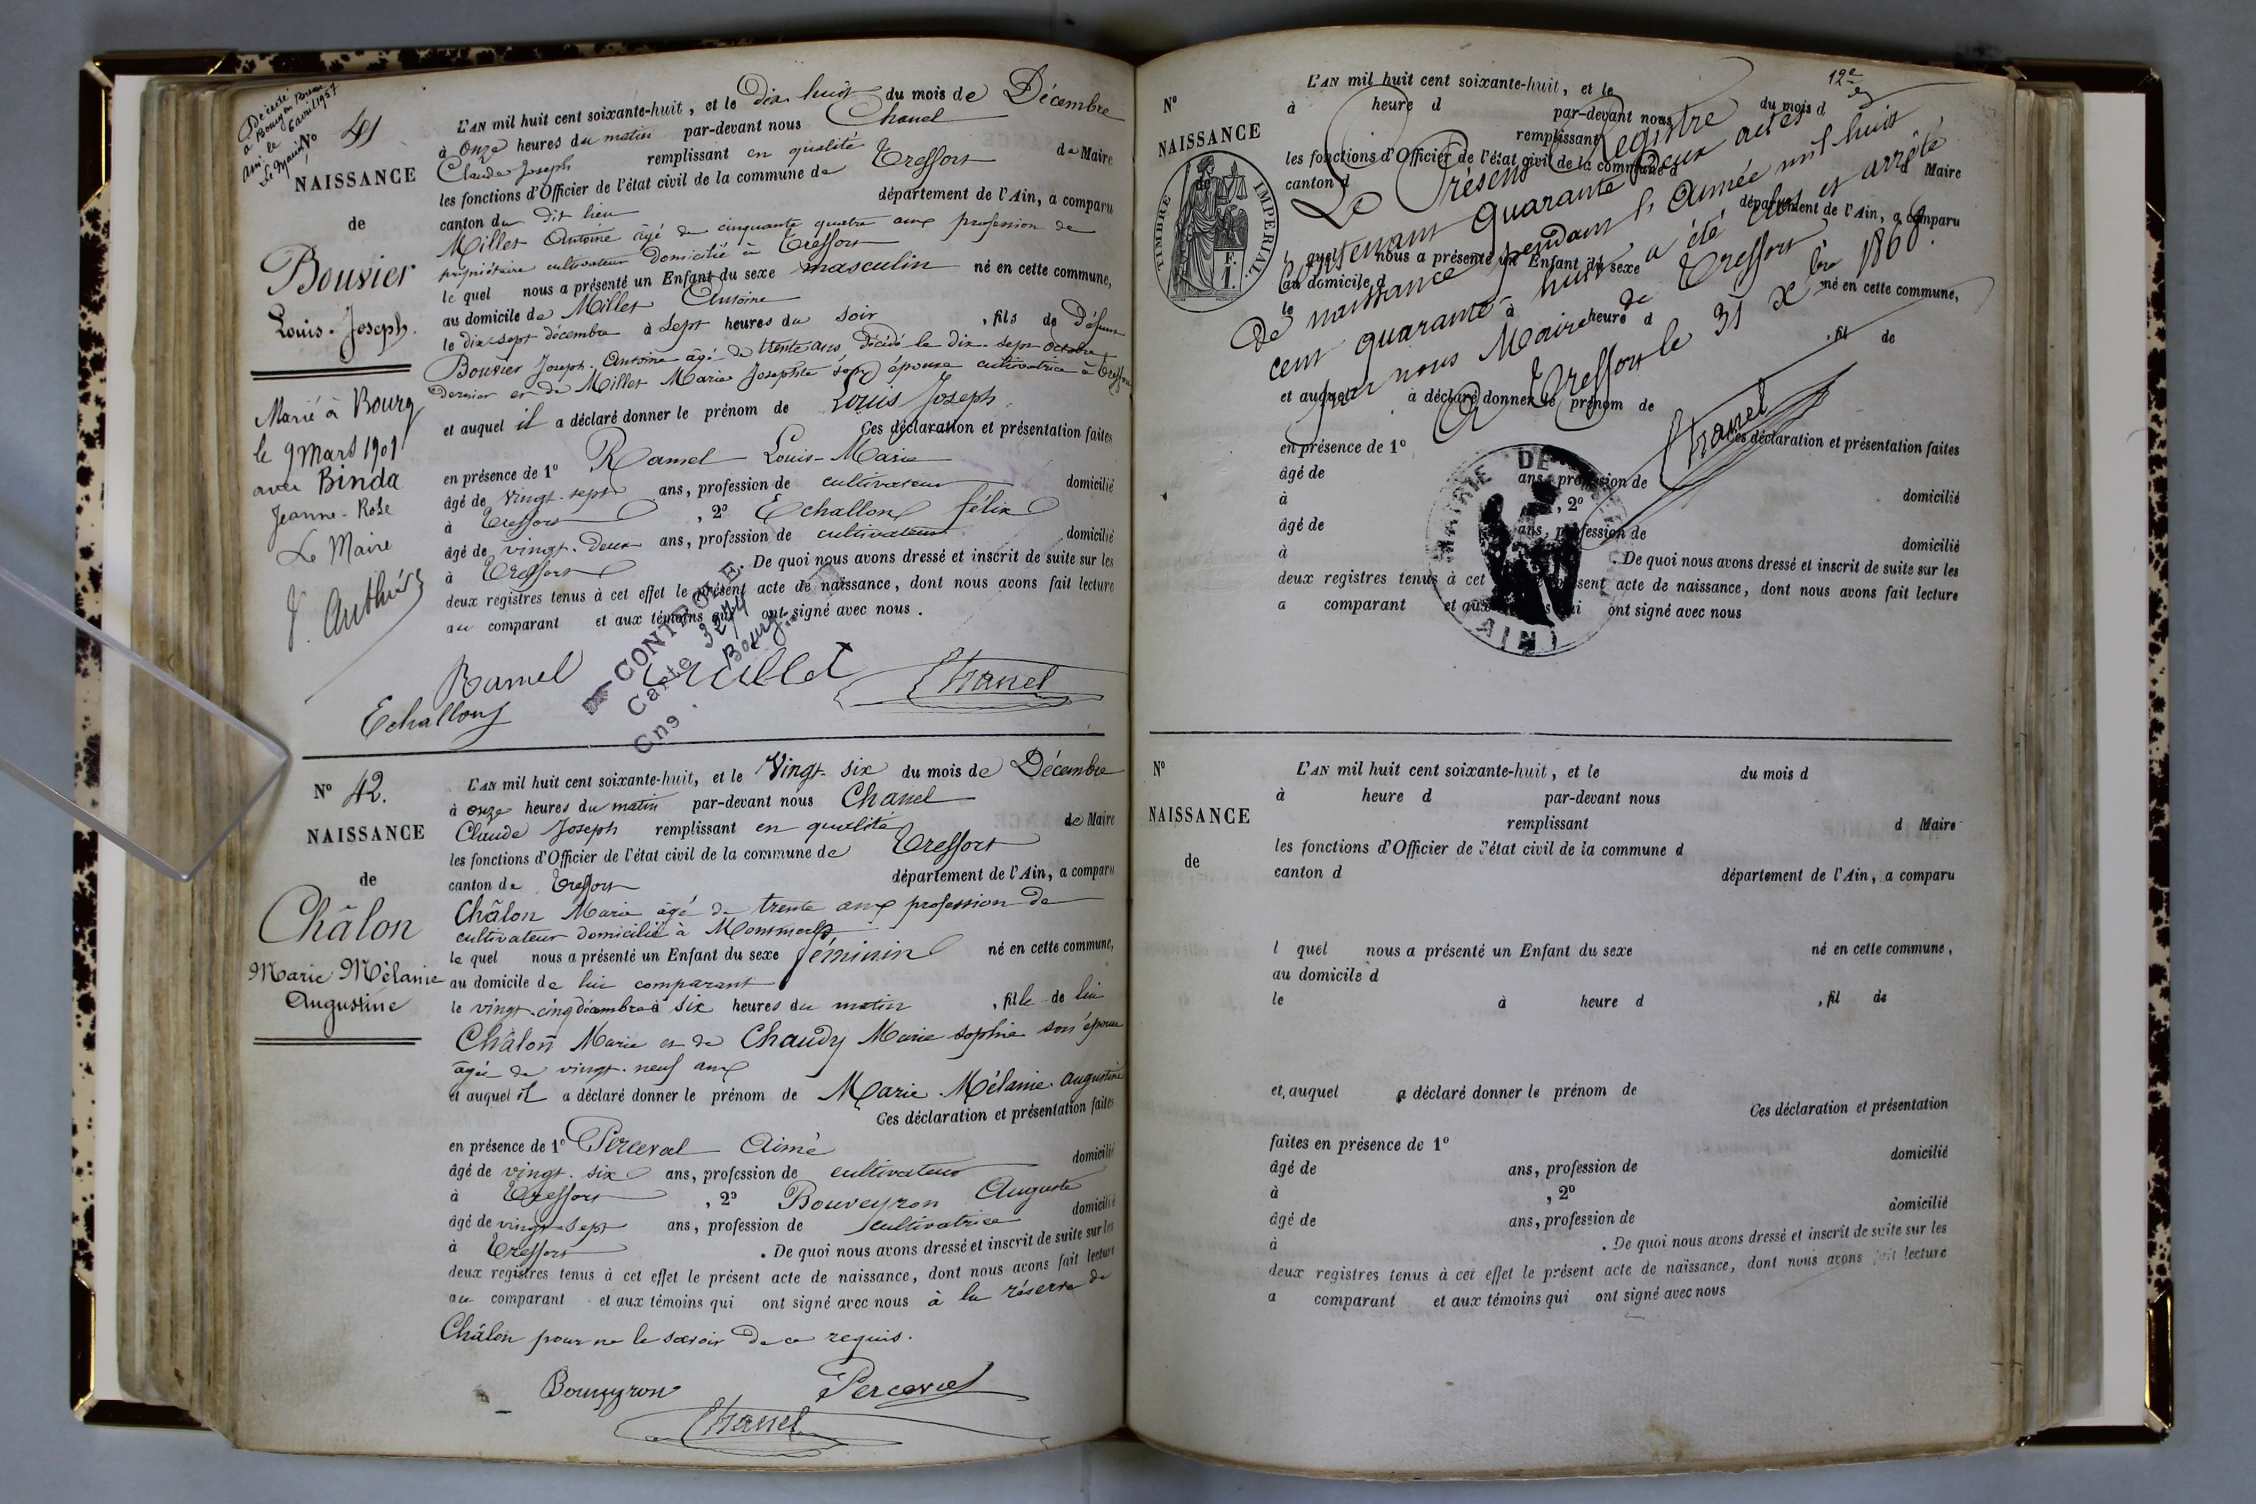 Décédé
à Bourg en Bresse
le 6 avril 1957
Nº 41
NAISSANCE
de
Bouvier
Louis-Joseph.
Marié à Bourg
le 9 Mars 1901
avec Binda
Jeanne-Rose
Le Maire
L'AN mil huit cent soixante-huit, et le dix huit du mois de Décembre
à onze heures du matin par-devant nous Chanel
Claude Joseph remplissant en qualité de Maire
les fonctions d'Officier de l'état civil de la commune de Treffort
canton du dit lieu département de l'Ain, a comparu
Millet Antoine âgé de cinquante quatre ans profession de
propriétaire cultivateur domicilié à Treffort
le quel nous a présenté un Enfant du sexe masculin né en cette commune,
au domicile de Millet Antoine
le dix sept décembre à sept heures du soir, fils de Défunt
Bouvier Joseph-Antoine âgé de trente ans décédé le dix-sept octobre
dernier et de Millet Marie Josephte son épouse cultivatrice à Treffort
et auquel il a déclaré donner le prénom de Louis Joseph.
Ces déclaration et présentation faites
en présence de 1º Ramel Louis-Marie
âgé de vingt-sept ans, profession de cultivateur domicilié
à Treffort, 2º Echallon félix
âgé de vingt-deux ans, profession de cultivateur domicilié
à Treffort. De quoi nous avons dressé et inscrit de suite sur les
deux registres tenus à cet effet le présent acte de naissance, dont nous avons fait lecture
au comparant et aux témoins qui ont signé avec nous.
CONTROLE.
Carte 3274
Cne. Bourg.
Ramel Millet Chanel
Echallon
Nº 42.
NAISSANCE
de
Châlon
Marie Mélanie
Augustine
L'AN mil huit cent soixante-huit, et le Vingt-six du mois de Décembre
à onze heures du matin par-devant nous Chanel
Claude Joseph remplissant en qualité de Maire
les fonctions d'Officier de l'état civil de la commune de Treffort
canton de Treffort département de l'Ain, a comparu
Châlon Marie âgé de trente ans profession de
cultivateur domicilié à
le quel nous a présenté un Enfant du sexe féminin né en cette commune,
au domicile de lui comparant
le vingt-cinq décembre à six heures du matin, fille de lui
Châlon Marie et de Chaudy Marie sophie son épouse
âgée de vingt-neuf ans
et auquel il a déclaré donner le prénom de Marie-Mélanie-augustine
Ces déclaration et présentation faites
en présence de 1º Perceval Aimé
âgé de vingt-six ans, profession de cultivateur domicilié
à Treffort, 2º Bouveyron Auguste
âgé de vingt-sept ans, profession de cultivatrice domicilié
à Treffort. De quoi nous avons dressé et inscrit de suite sur les
deux registres tenus à cet effet le présent acte de naissance, dont nous avons fait lecture
au comparant et aux témoins qui ont signé avec nous à la réserve de
Châlon pour ne le savoir de ce requis.
Bouveyron Perceval
Chanel
12e
Nº
NAISSANCE
de
TIMBRE IMPERIAL.
F. 1.
L'AN mil huit cent soixante-huit, et le du mois d
à heure d par-devant nous
remplissant d Maire
les fonctions d'Officier de l'état civil de la commune d
canton d département de l'Ain, a comparu
l quel nous a présenté un Enfant du sexe né en cette commune,
au domicile d
le à heure d, fil de
et auquel a déclaré donner le prénom de
Ces déclaration et présentation faites
en présence de 1º
âgé de ans, profession de domicilié
à, 2º
âgé de ans, profession de domicilié
à. De quoi nous avons dressé et inscrit de suite sur les
deux registres tenus à cet présent acte de naissance, dont nous avons fait lecture
a comparant et aux ont signé avec nous
Le Présent Registre
Contenant quarante Deux actes
De naissance pendant l'année mil huit
cent quarante huit a été clos et arrêté
par nous Maire de Treffort
A Treffort le 31 Xbre 1868.
Chanel
MAIRIE DE
(AIN)
Nº
NAISSANCE
de
L'AN mil huit cent soixante-huit, et le du mois d
à heure d par-devant nous
remplissant d Maire
les fonctions d'Officier de l'état civil de la commune d
canton d département de l'Ain, a comparu
l quel nous a présenté un Enfant du sexe né en cette commune,
au domicile d
le à heure d, fil de
et auquel a déclaré donner le prénom de
Ces déclaration et présentation
faites en présence de 1º
âgé de ans, profession de domicilié
à, 2º
âgé de ans, profession de domicilié
à. De quoi nous avons dressé et inscrit de suite sur les
deux registres tenus à cet effet le présent acte de naissance, dont nous avons fait lecture
a comparant et aux témoins qui ont signé avec nous